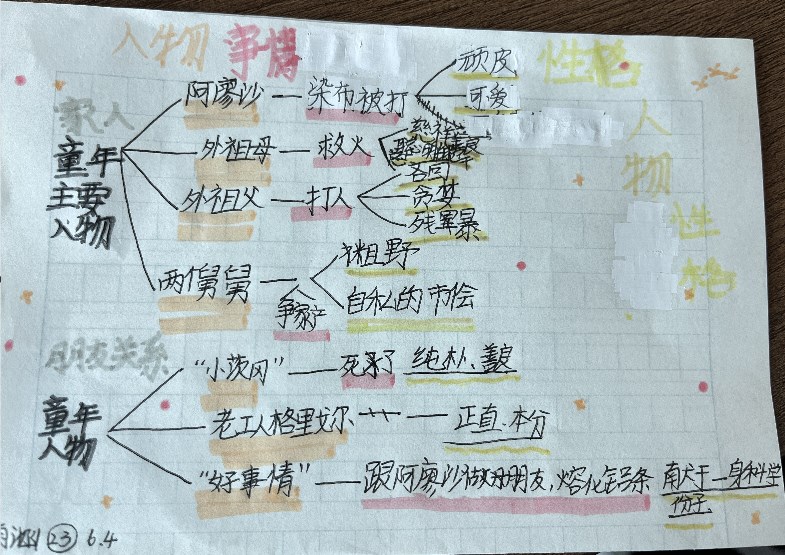 人物 事情 性格
家人
童年
主要
人物
阿廖沙 — 染布被打 顽皮
可爱
外祖母 — 救火 慈祥
外祖父 — 打人 吝啬
贪婪
残暴
两个舅舅 — 争家产 粗野
自私的市侩
人物
性格
朋友关系
童年
人物
“小茨冈” — 死了 纯朴、善良
老工人格里戈尔 — 正直、本分
“好事情” — 跟阿廖沙做好朋友，熔化铅条 献于一身科学
份子
23 6.4